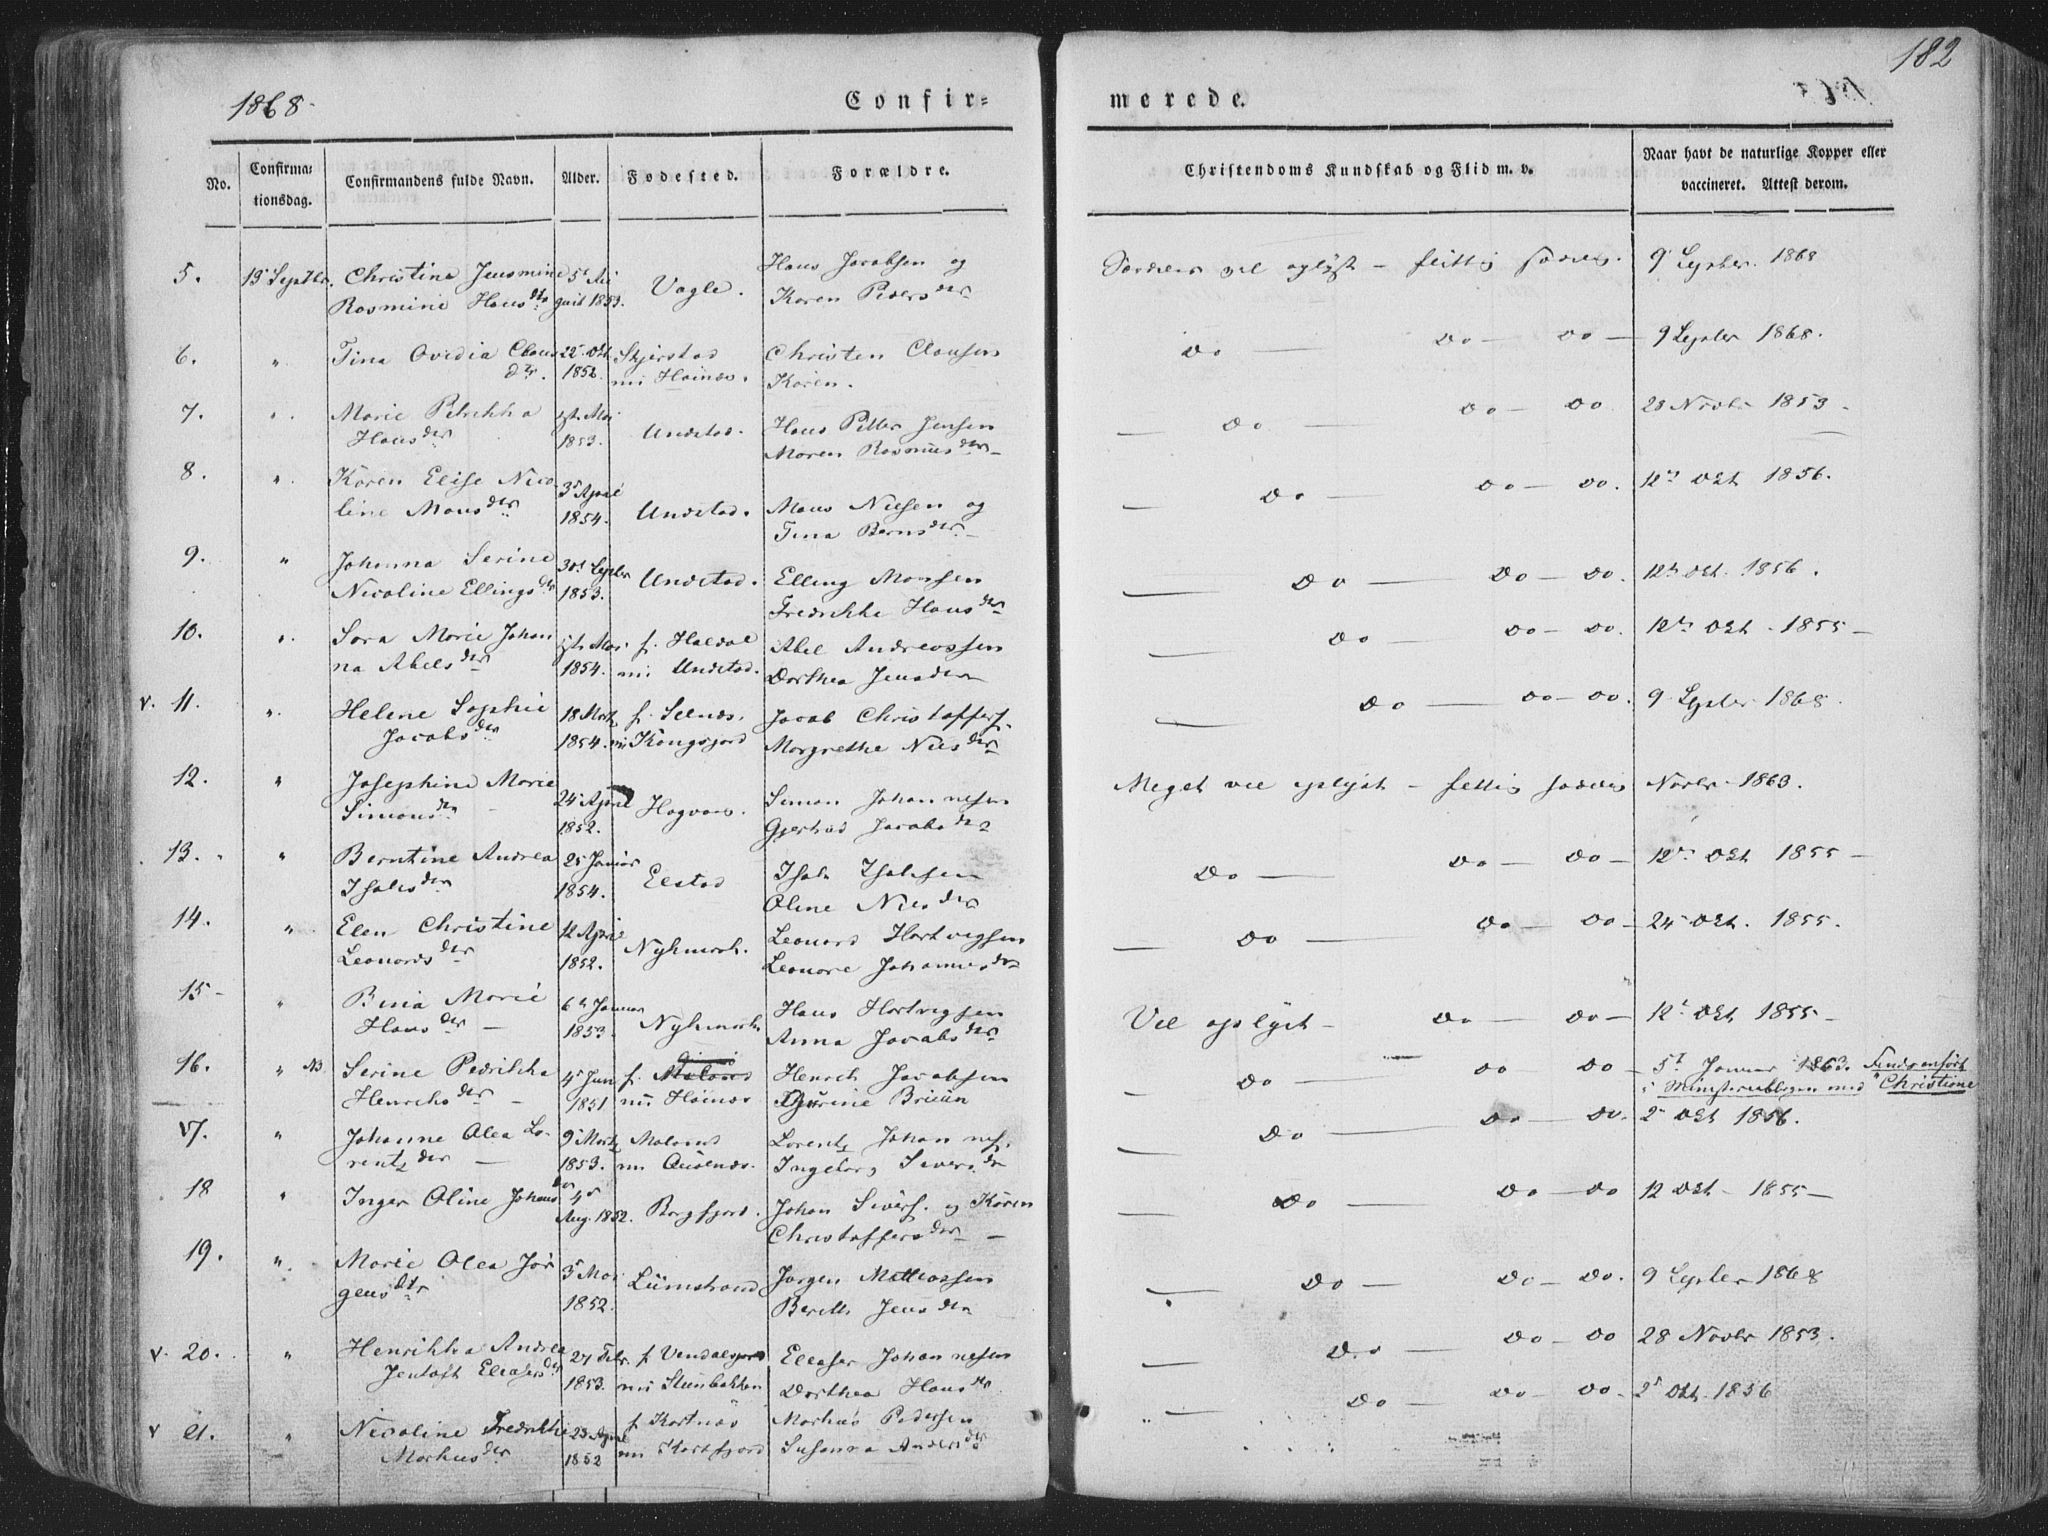 182
1868-
Confir=
merede.
No.
Confirma:
tionsdag.
Confirmandens fulde Navn.
Alder.
Fodested.
Forældre.
Christendoms Kundskab og Flid m. v.
Naar havt de naturlige Kopper eller
vaccineret. Attest derom.
5. 13 Septbr. Christina Jensmine 5t Au
Rasmine Hansdtr gust 1853. Vagle. Hans Jacobsen og
Karen Pedersdtr
vel oplyst - flittig sædelig. 9 Septbr. 1868
6. " Tina Ovidia Claus 22 Okt Skjerstad Christen Clausen
dtr. 1852. nu Høinæs. Karen.
Do — Do — Do — 9 Septbr 1868.
7. " Marie Petrikka Mai
Hansdtr 1853. Undstad. Hans Petter Jensen
Maren Rasmusdtr
— Do — Do — Do 28 Novbr 1853 -
8. " Karen Elise Nico
line Monsdtr 3 April 1854. Undstad. Mons Nielsen og
Tina Berndtr
— Do — Do — Do. 12 Okt 1856.
9. " Johanna Serine 30t Septbr
Nicoline Ellingsdtr 1853. Undstad. Elling Monsen
Fredrikke Hansdtr
— Do — Do — Do. 12 Okt. 1856.
10. " Sara Marie Johan Mai f. Haldal Abel Andreassen
na Abelsdtr 1854. nu Undstad. Dorthea Jensdtr
— Do — Do — Do. 12 Okt - 1855 —
v. 11. " Helene Sophie 18 Marts f. Selnæs. Jacob Christoffers.
Jacobsdtr 1854. nu Kongsjord Margrethe Nilsdtr
— Do — Do — Do. 9 Septbr 1868
12. " Josephine Marie 24 April Hagvaag. Simon Johannesen
Simonsdtr - 1852. Gjertrud Jacobsdtr
Meget vel oplyst - flittig sædelig Novbr 1863.
13. " Berntine Andrea 25 Januar Elstad Isak Isaksen
Isaksdtr 1854. Oline Nilsdtr
Do — Do — Do — 12 Okt 1855 —
14. " Elen Christine 12 April Nykmark. Leonard Hartvigsen
Leonardsdtr 1852. Leonore Johannesdtr
— Do — Do — Do — 24 Okt. 1855.
15 - " Bina Marie 6 Januar Nykmark Hans Hartvigsen
Hansdtr — 1853. Anna Jacobsdtr
Vel oplyst - Do — Do — 12 Okt 1855 —
16. " NB. Serine Pedrikka 4 Juni f. Henrik Jacobsen
Henriksdtr - 1851 nu Høinæs
— Do — Do Do — 5t Januar 1863. Findes anført
i Ministerialbogen med "Christiane
17. " Johanne Olea Lo- 9 Marts Malnes Lorentz Johannes.
rentzdtr — 1853. nu Ingeborg Siversdtr
— Do — Do — Do. 2 Okt 1856.
18 " Inger Oline Johansdtr 4 Borgfjord. Johan Sivers. og Karen
Aug. 1852. Christoffersdtr —
— Do — Do — Do 12 Okt - 1855 —
19. " Marie Olea Jør 3 Mai Limstrand Jørgen Mathiassen
gensdtr 1852. Berith Jensdtr
— Do — Do — Do. 9 Septbr 1868
v. 20. " Henrikka Andrea 27 Febr. f. Eleaser Johannesen
Jentoft Eleasersdtr 1853. nu Steinbakken Dorthea Hansdtr
— Do — Do — Do 28 Novbr 1853.
v 21. " Nicoline Fredrikke 23 April f. Kartnæs Markus Pedersen
Markusdtr 1852 nu Kartfjord Susanna Andersdtr
— Do — Do — Do. 2 Okt. 1856